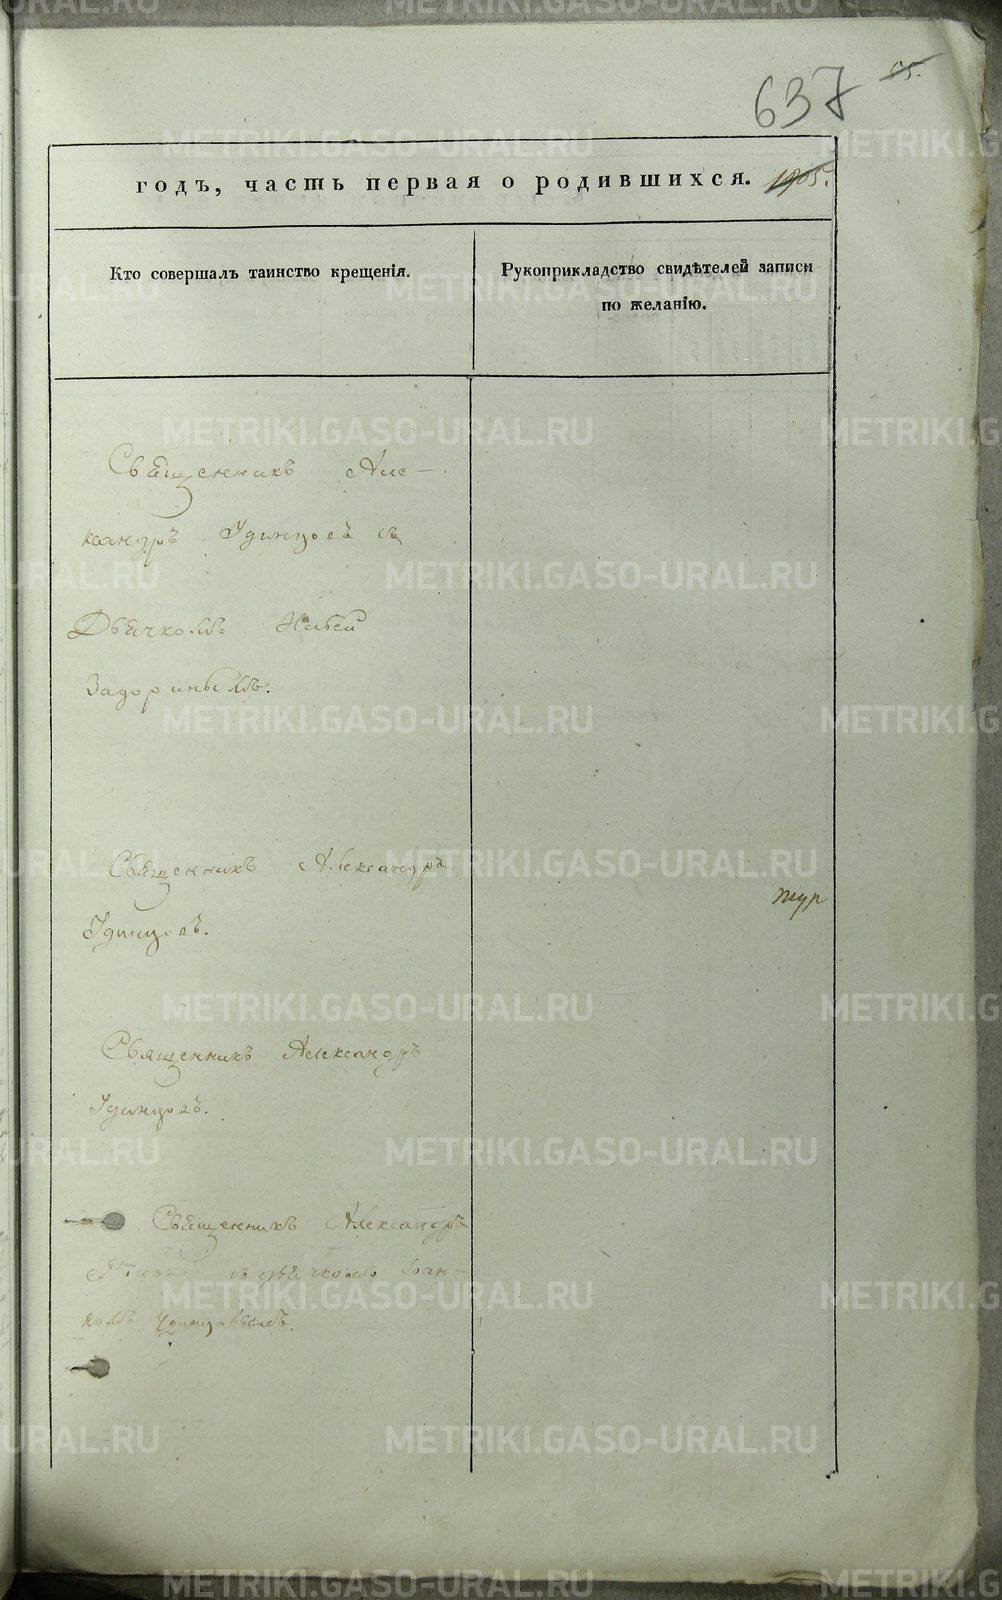 637
55.
годъ, часть первая о родившихся. 1905.
Кто совершалъ таинство крещенія.
Рукоприкладство свидѣтелей записи
по желанію.
Священникъ Але-
ксандръ Удинцовъ съ
Дьячкомъ
Задоринымъ.
Священникъ Александръ
Удинцовъ.
Священникъ Александръ
Удинцовъ.
Священникъ Александръ
съ дьячкомъ
Удинцовымъ.
METRIKI.GASO-URAL.RU